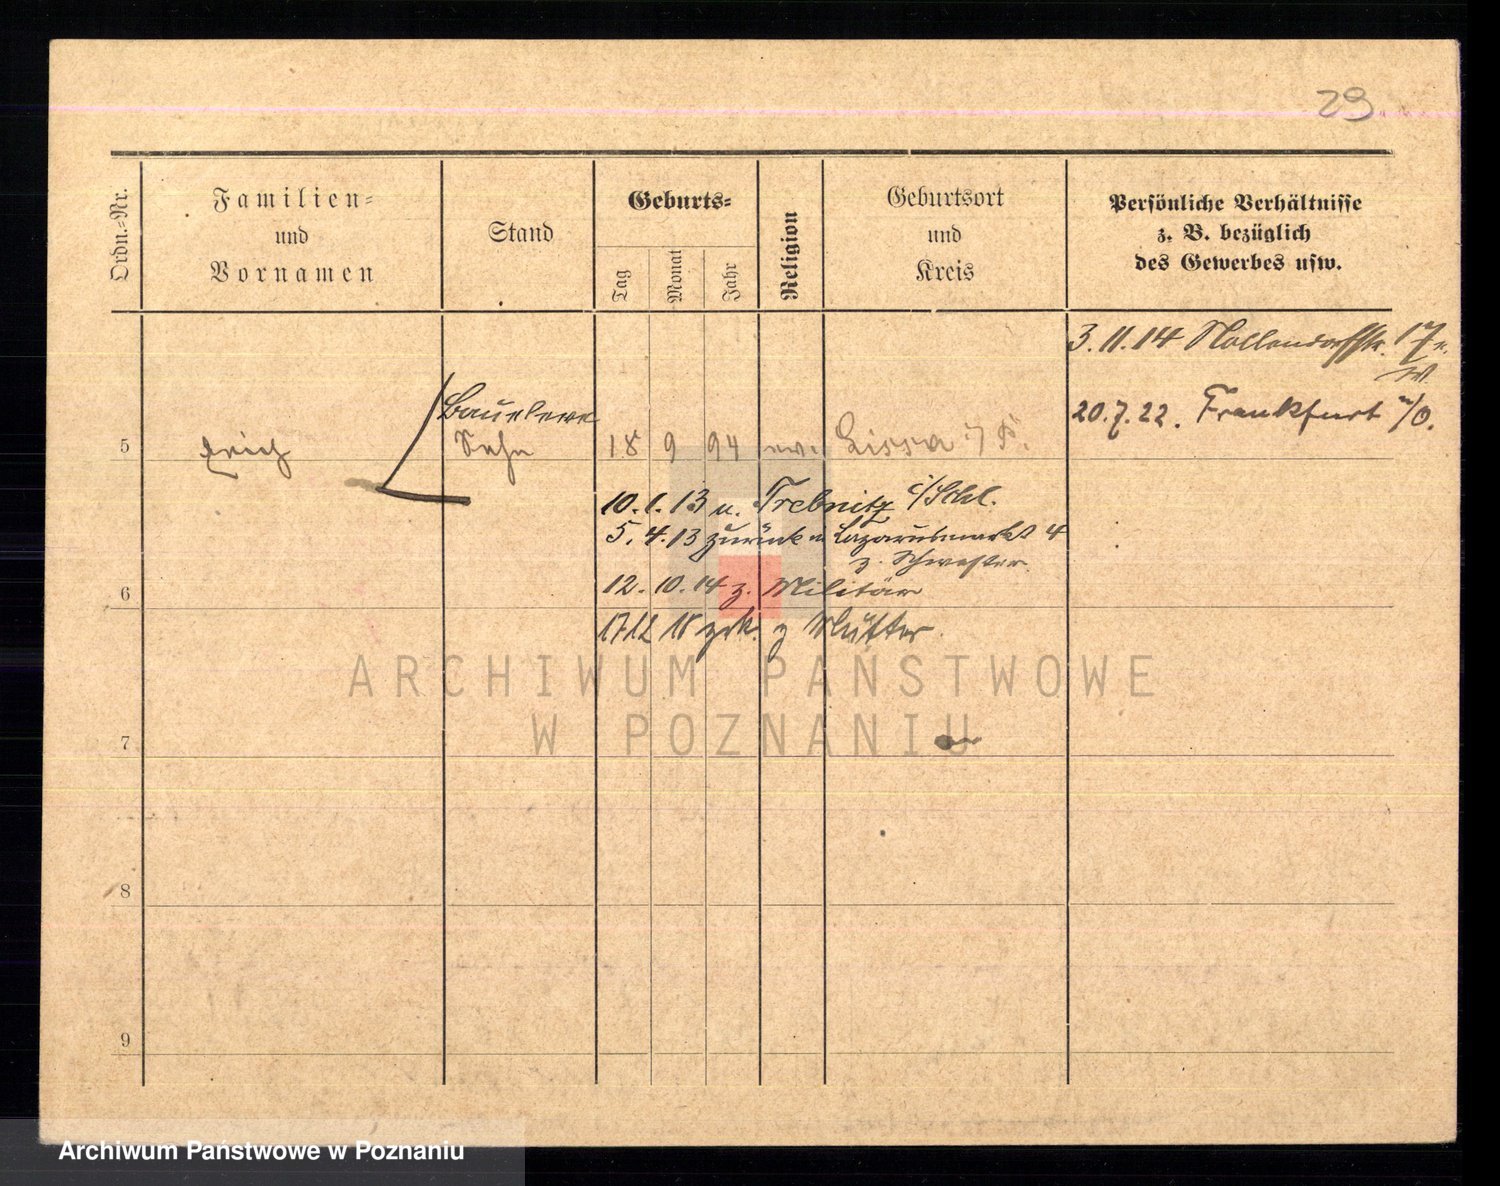 29.
Ordn.-Nr.
Familien-
und
Vornamen
Stand
Geburts-
Tag
Monat
Jahr
Religion
Geburtsort
und
Kreis
Persönliche Verhältnisse
z. B. bezüglich
des Gewerbes usw.
3.11.14 Nollendorfstr. 17
20.7.22. Frankfurt a/O.
Baueleve
5 Erich Sohn 18 9 94 ev. Lissa i/P.
10.1.13 n. Trebnitz i/Schl.
5.4.13 zurück n Lazarusmarkt 4
z. Schwester
6 12.10.14 z. Militär
17 12 18 zrk. z Mutter.
ARCHIWUM PAŃSTWOWE
W POZNANIU
7
8
9
Archiwum Państwowe w Poznaniu